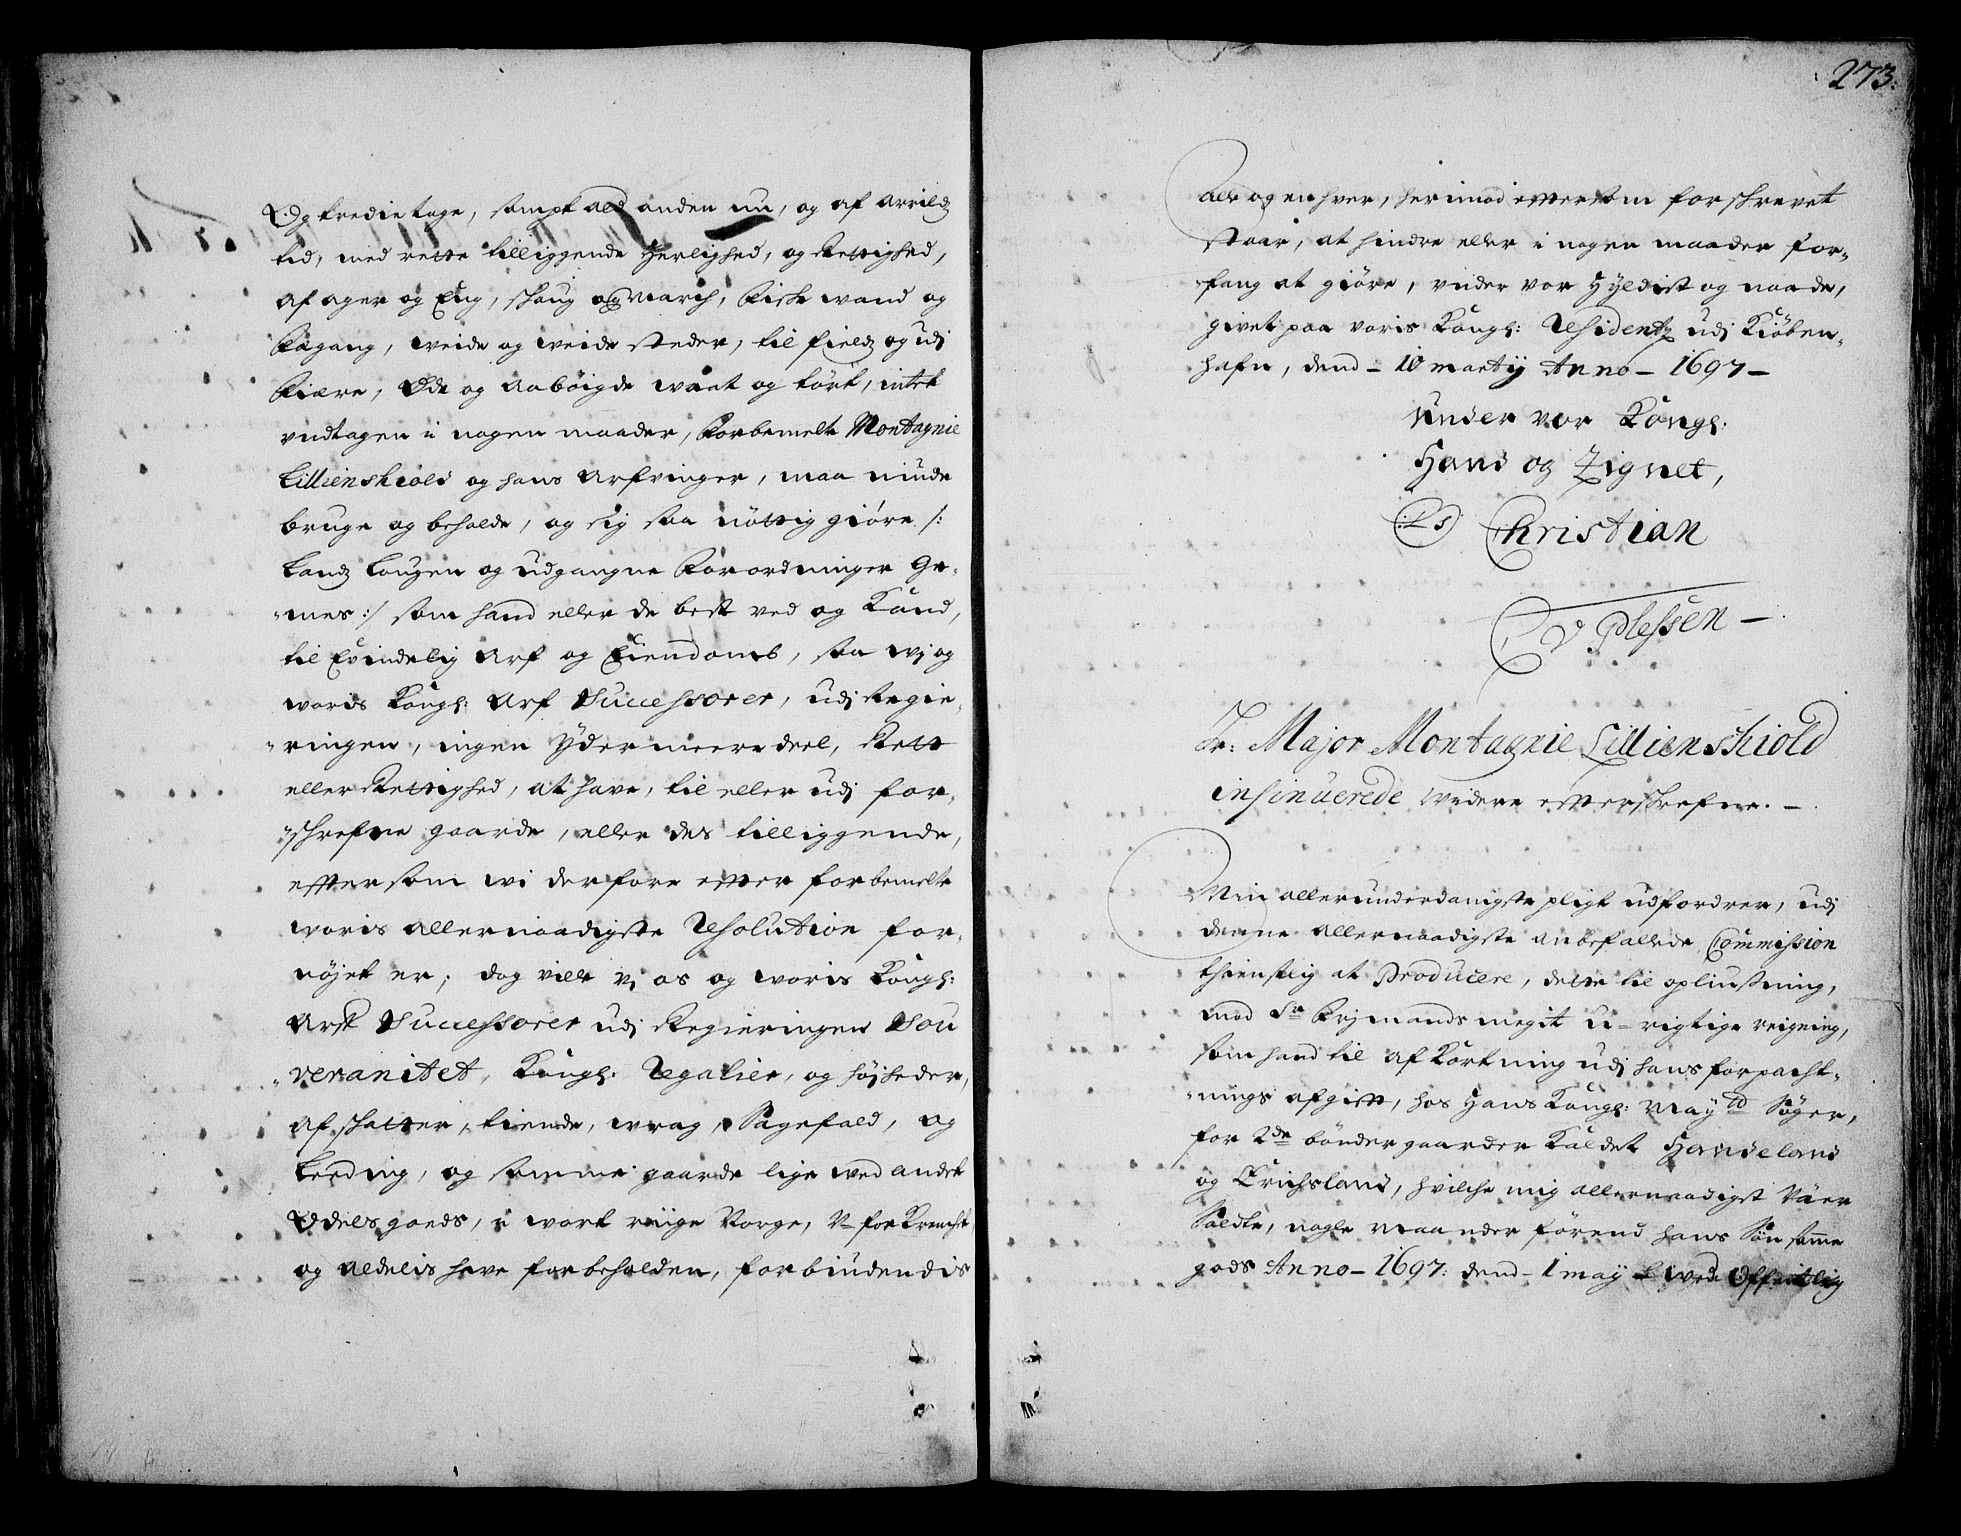 Og tredie tage, sampt ald anden nu, og af arrilds
tid, med rette tilliggende Herlighed, og Rettighed,
af ager og Eng, skoug og March, fiske wand og
fægang, weide og weide steder, til field og udj
fiære, Øde og aabøigde waat og tørt, intet
undtagen i nogen maader, forbemelte Montagnie
Lillienskiold og hans Arfvinger, maa niude
bruge og beholde, og sig saa nøttig giøre /:
Landz Lougen og udgangne forordninger Ge-
-mes :/ som hand eller de best ved og kand,
til Evindelig Arf og Eiendomb, saa wj og
woris Kongl: Arf Successorer, udj Regie-
-ringen, ingen Ydermeere deel, Rett
eller Rettighed, at have, til eller udj for-
-skrefne gaarde, eller des tilliggende,
efftersom wi derfore effter forbemelte
woris allernaadigste Resolution for-
nøjet er; dog ville vj os og woris Kongl:
Arf Successorer udj Regieringen Sou
-veranitet, Kongl: Regalier, og højheder,
af skatter, tiende, wrag, Sagefald, og
Leeding, og samme gaarde lige wed andet
Odels goeds, i wort riige Norge, V-forkrencht
og aldelis have forbeholden, forbiudendis
273:
alle og en hver, herimod effterrsom forskrevet
staar, at hindre eller i nogen maader for-
-fang at giøre, under vor Hyldist og naade,
givet paa voris Kongl: Residentz udj Kiøben-
hafn, dend - 10 Martij Anno - 1697 -
Under vor Kongl:
Hand og Zignet,
(: L S :) Christian
C V Plessen -
Hr: Major Montagnie Lillienskiold
insinuerede widere effterskrefne. -
Min allerunderdanigste pligt udfordrer, udj
denne allernaadigste anbefallede Commission
thienstlig at Producere, dette til opliusning,
mod Sr Frjmands megit u-rigtige reigning,
som hand til afkortning udj hans forpacht-
-nings afgifft, hos Hans Kongl: Maytd Søger,
for 2de bønder gaarder kaldet Handeland
og Erichsland, hvilche mig allernaadigst Vaer
Soldte, nogle maaneder førend hans Søn samme
gods Anno - 1697: dend - 1 may wed Offentlig